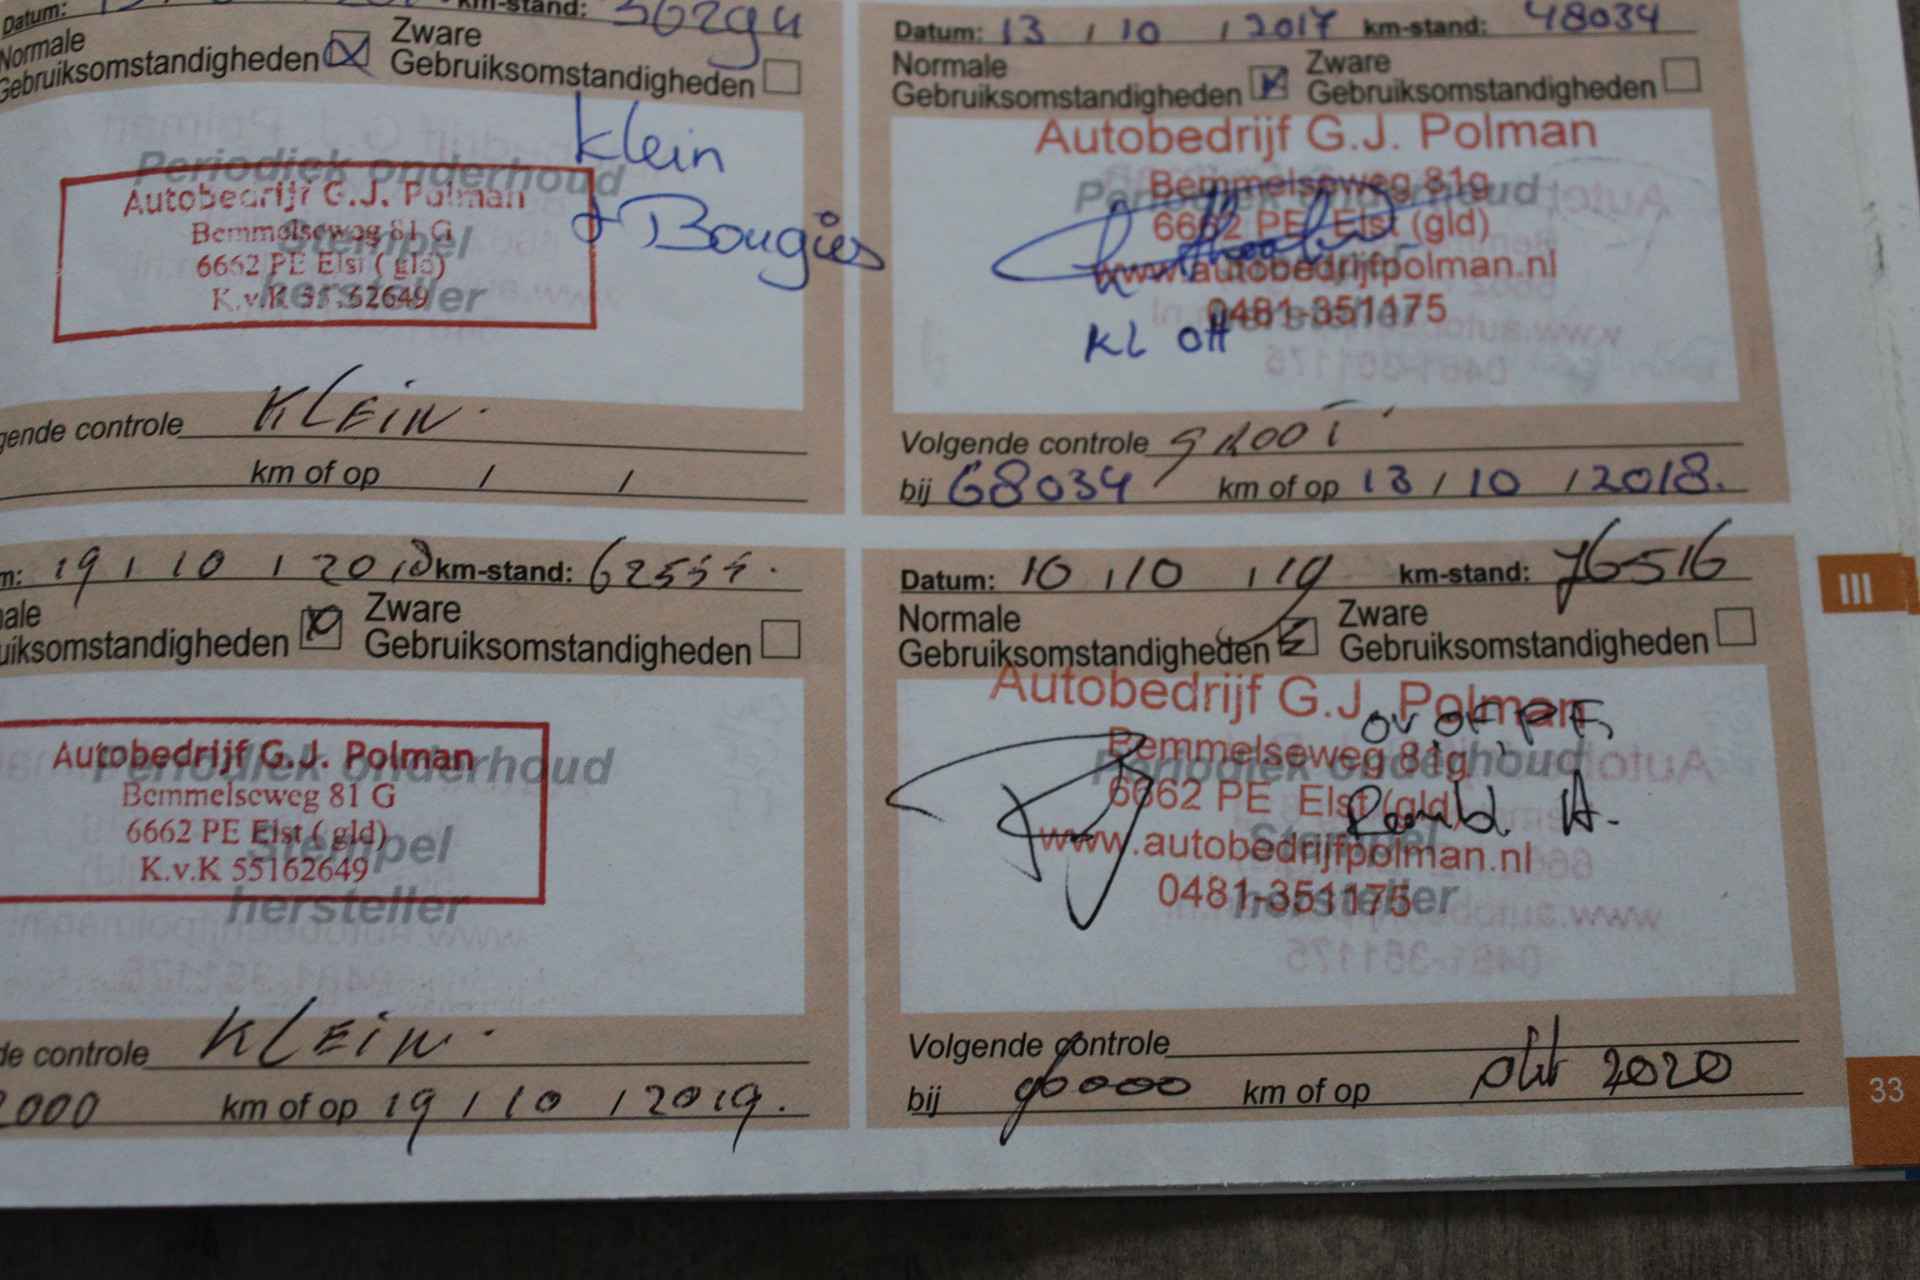 Datum: km-stand: 36294
Normale
Gebruiksomstandigheden
Zware
Gebruiksomstandigheden
Klein
+ Bougies
Periodiek onderhoud
Stempel
hersteller
Autobedrijf G.J. Polman
Bemmelseweg 81 G
6662 PE Elst ( gld)
K.v.K 55162649
gende controle KLEIN.
km of op / /
Datum: 13 / 10 / 2017 km-stand: 48034
Normale
Gebruiksomstandigheden
Zware
Gebruiksomstandigheden
Autobedrijf G.J. Polman
Bemmelseweg 81g
6662 PE Elst (gld)
www.autobedrijfpolman.nl
0481-351175
Periodiek onderhoud
hersteller
KL OH
Volgende controle GROOT
bij 68034 km of op 13 / 10 / 2018.
m: 19 / 10 / 2018 km-stand:
ale
uiksomstandigheden
Zware
Gebruiksomstandigheden
Periodiek onderhoud
Stempel
hersteller
Autobedrijf G.J. Polman
Bemmelseweg 81 G
6662 PE Elst ( gld)
K.v.K 55162649
de controle KLEIN.
000 km of op 19 / 10 / 2019.
Datum: 10 / 10 / 19 km-stand: 76516
Normale
Gebruiksomstandigheden
Zware
Gebruiksomstandigheden
Autobedrijf G.J. Polman
Bemmelseweg 81g
6662 PE Elst (gld)
www.autobedrijfpolman.nl
0481-351175
Periodiek onderhoud
Stempel
hersteller
Volgende controle
bij 90000 km of op okt 2020
III
33